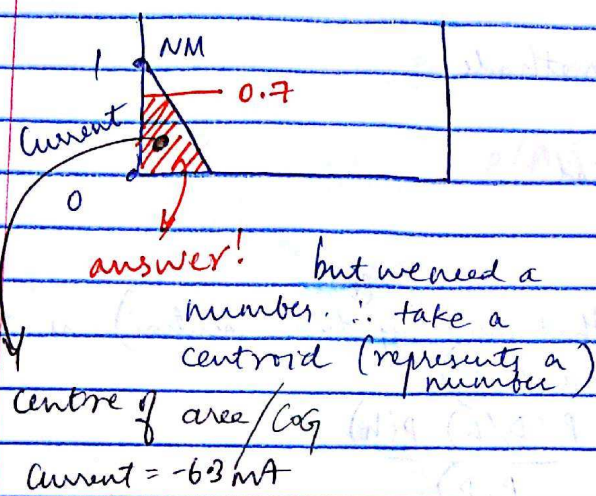 1 NM
0.7
Current
0
answer! but we need a
number. ∴ take a
centroid (represents a
number)
Centre of area/CoG
Current = -6.3 mA